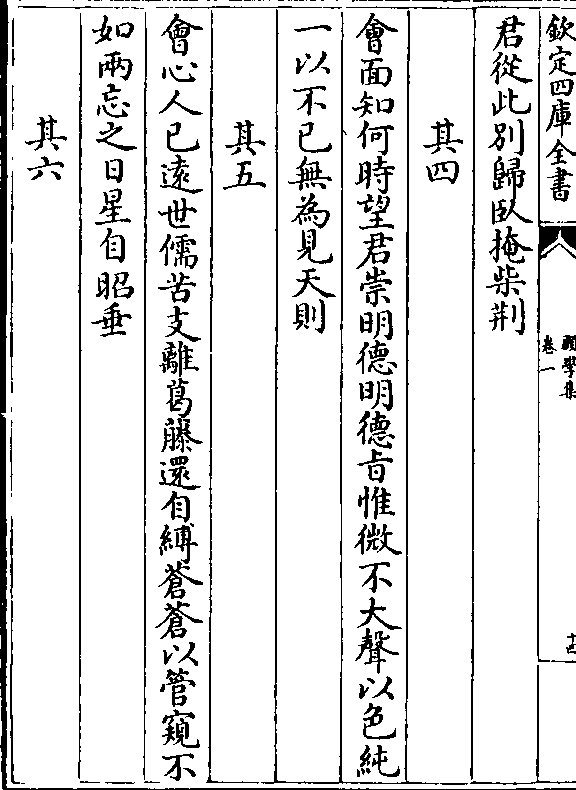 欽定四庫全書
願學集
卷一
十四
君從此別歸臥掩柴荆
其四
會面知何時望君崇明德明德旨惟微不大聲以色純
一以不已無為見天則
其五
會心人已逺世儒苦支離葛藤還自縛蒼蒼以管窺不
如兩忘之日星自昭垂
其六